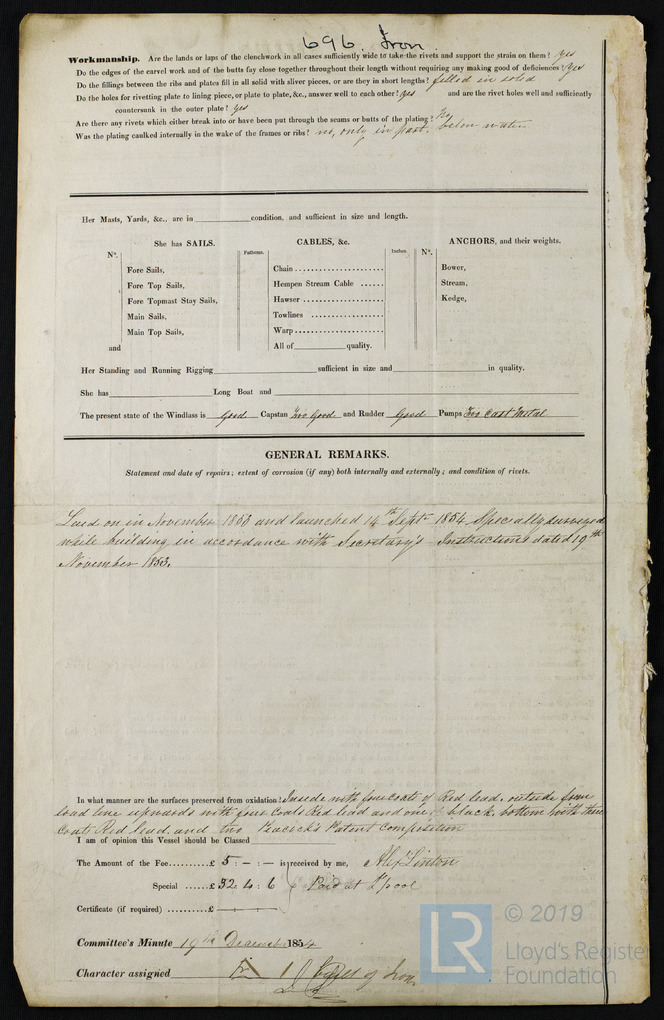 696 Iron
Workmanship. Are the lands or laps of the clenchwork in all cases sufficiently wide to take the rivets and support the strain on them? yes
Do the edges of the carvel work and of the butts fay close together throughout their length without requiring any making good of deficiences? yes
Do the fillings between the ribs and plates fill in all solid with sliver pieces, or are they in short lengths? filled in solid
Do the holes for rivetting plate to lining piece, or plate to plate, &c., answer well to each other? yes and are the rivet holes well and sufficiently
countersunk in the outer plate? yes
Are there any rivets which either break into or have been put through the seams or butts of the plating? No
Was the plating caulked internally in the wake of the frames or ribs? no, only in part. below water
Her Masts, Yards, &c., are in condition, and sufficient in size and length.
She has SAILS. CABLES, &c. ANCHORS, and their weights.
Nº. Fathoms. Inches. Nº.
Fore Sails, Chain Bower,
Fore Top Sails, Hempen Stream Cable Stream,
Fore Topmast Stay Sails, Hawser Kedge,
Main Sails, Towlines
Main Top Sails, Warp
and All of quality.
Her Standing and Running Rigging sufficient in size and in quality.
She has Long Boat and
The present state of the Windlass is Good Capstan Two Good and Rudder Good Pumps Two Cast Metal
GENERAL REMARKS.
Statement and date of repairs; extent of corrosion (if any) both internally and externally; and condition of rivets.
Laid on in November 1853 and launched 14th Septr 1854 Specially surveyed
while building in accordance with Secretary's Instructions dated 19th
November 1853.
In what manner are the surfaces preserved from oxidation? Inside with four coats of Red lead, outside from
load line upwards with four Coats Red lead and one of black. bottom with three
Coats Red lead and two Peacock's Patent Composition
I am of opinion this Vessel should be Classed
The Amount of the Fee £ 5 : - : - is received by me, Alex Linton
Special £ 52 : 4 : 6 Paid at L'pool
Certificate (if required) £
Committee's Minute 19th December 1854
Character assigned of Iron
LR © 2019
Lloyd's Register
Foundation